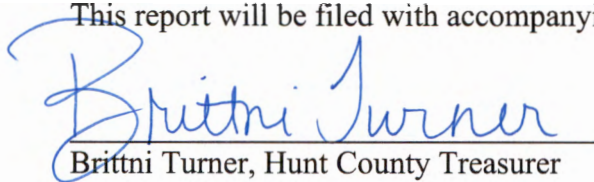 This report will be filed with
Brittni Turner
Brittni Turner, Hunt County Treasurer